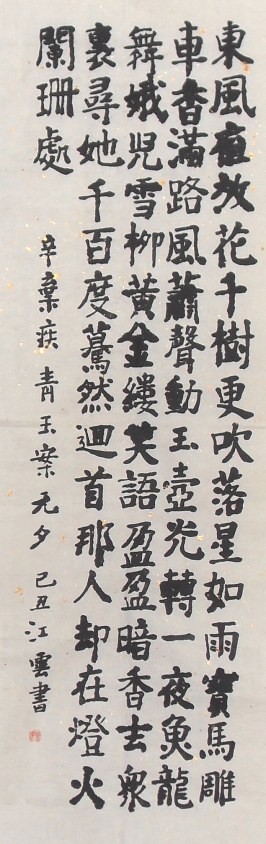 東風夜放花千樹更吹落星如雨寶馬雕
車香滿路風蕭聲動玉壺光轉一夜魚龍
舞娥兒雪柳黃金縷笑語盈盈暗香去衆
裏尋她千百度驀然迴首那人却在燈火
闌珊處
辛棄疾青玉案元夕 己丑江雲書